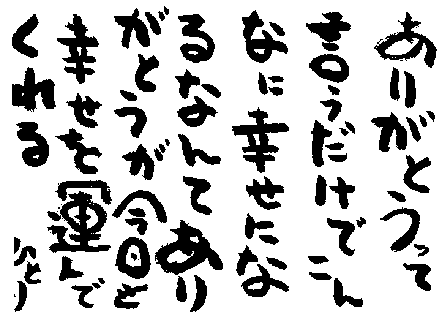 ありがとうって
言うだけでこん
なに幸せにな
るなんてあり
がとうが今日も
幸せを運んで
くれる